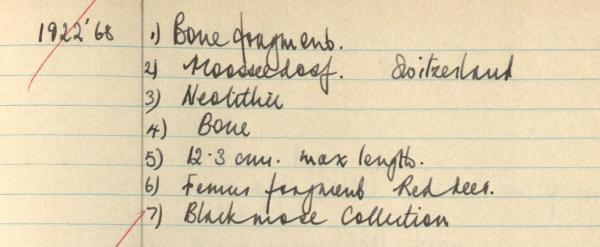 1922'68 1) Bone fragment.
2) Moosseedorf. Switzerland
3) Neolithic
4) Bone
5) 12.3 cm. max length.
6) Femur fragment Red deer.
7) Blackmore Collection